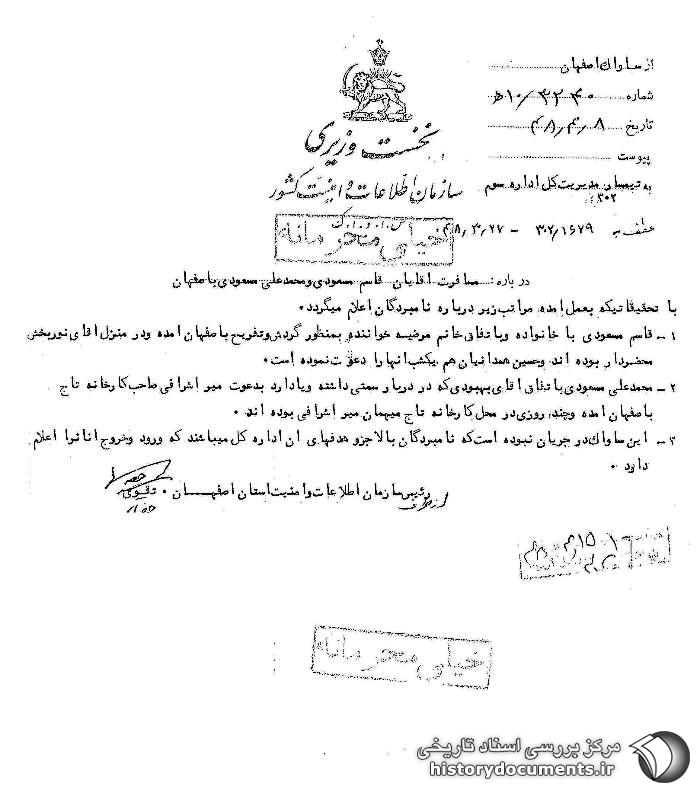 از ساواک اصفهان
شماره ۳۲۴۰/ﻫ۱۰
تاریخ ۴۸/۴/۸
پیوست
نخست وزیری
سازمان اطلاعات و امنیت کشور
س.ا.و.ا.ک
به تیمسار مدیریت کل اداره سوم
۳۰۲
عطف به ۳۰۲/۱۶۷۹ – ۴۸/۳/۲۷
خیلی محرمانه
در باره : مسافرت اقایان قاسم مسعودی و محمدعلی مسعودی باصفهان
با تحقیقاتیکه بعمل امده مراتب زیر درباره نامبردگان اعلام میگردد.
۱– قاسم مسعودی با خانواده وباتفاق خانم مرضیه خواننده بمنظور گردش وتفریح باصفهان امده ودر منزل اقای نوربخش
محضردار بوده اند وحسین همدانیان هم یکشب انها را دعوت نموده است.
۲– محمدعلی مسعودی باتفاق اقای بهبودی که در دربار سمتی داشته ویادارد بدعوت میراشرافی صاحب کارخانه تاج
باصفهان امده وچند روزی در محل کارخانه تاج میهمان میراشرافی بوده اند.
۳– این ساواک در جریان نبوده است که نامبردگان بالا جزو هدفهای ان اداره کل میباشند که ورود وخروج انانرا اعلام
دارد.
رئیس سازمان اطلاعات وامنیت استان اصفهان. تقوی
خیلی محرمانه
مرکز بررسی اسناد تاریخی
historydocuments.ir